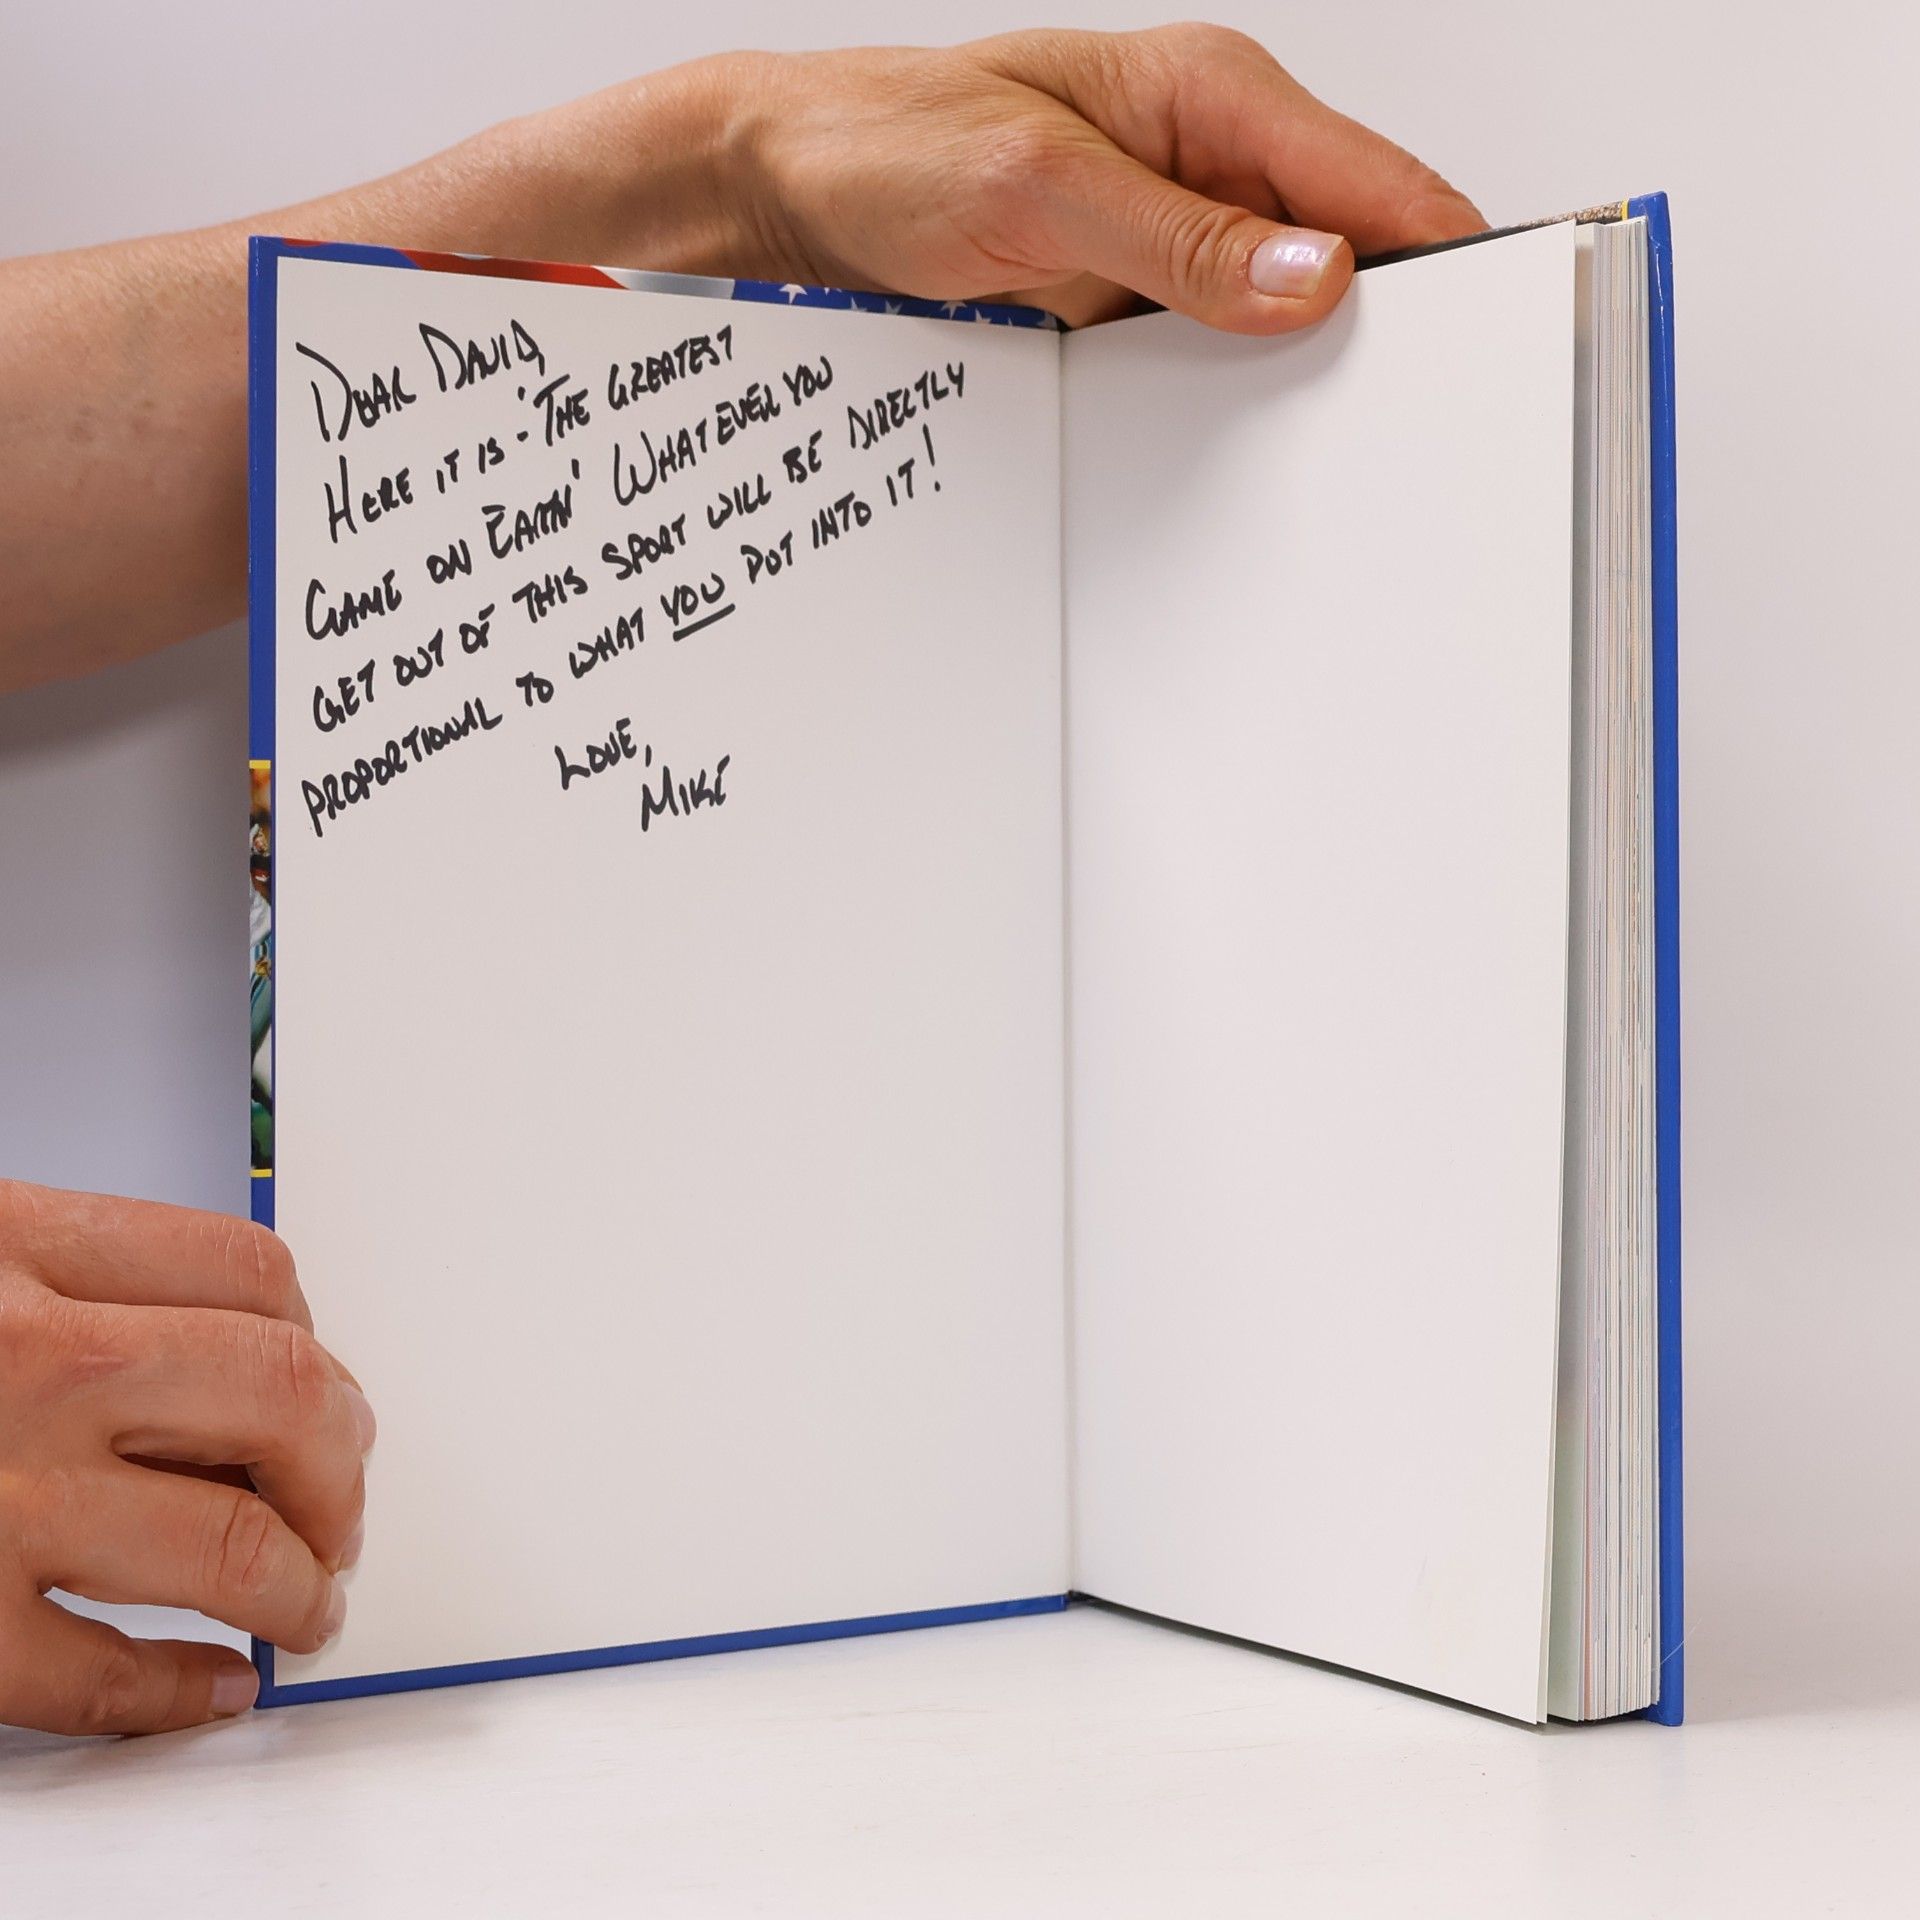 DEAR DAVID,
HERE IT IS - 'THE GREATEST
GAME ON EARTH' WHATEVER YOU
GET OUT OF THIS SPORT WILL BE DIRECTLY
PROPORTIONAL TO WHAT YOU PUT INTO IT!
LOVE,
MIKE